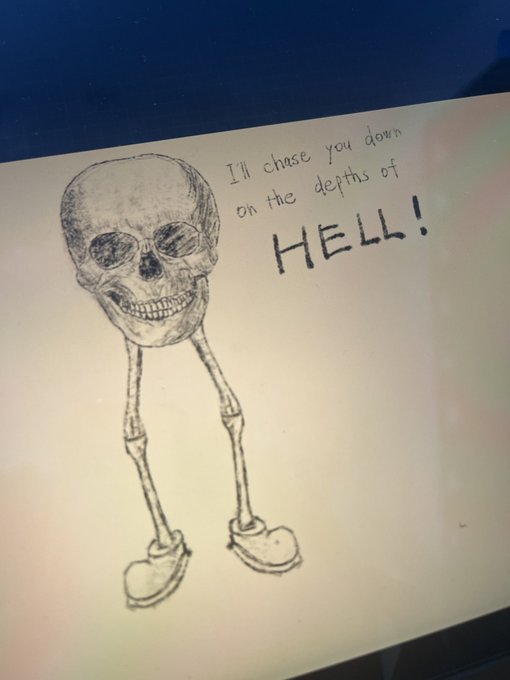 I'll chase you down
on the depths of
HELL!